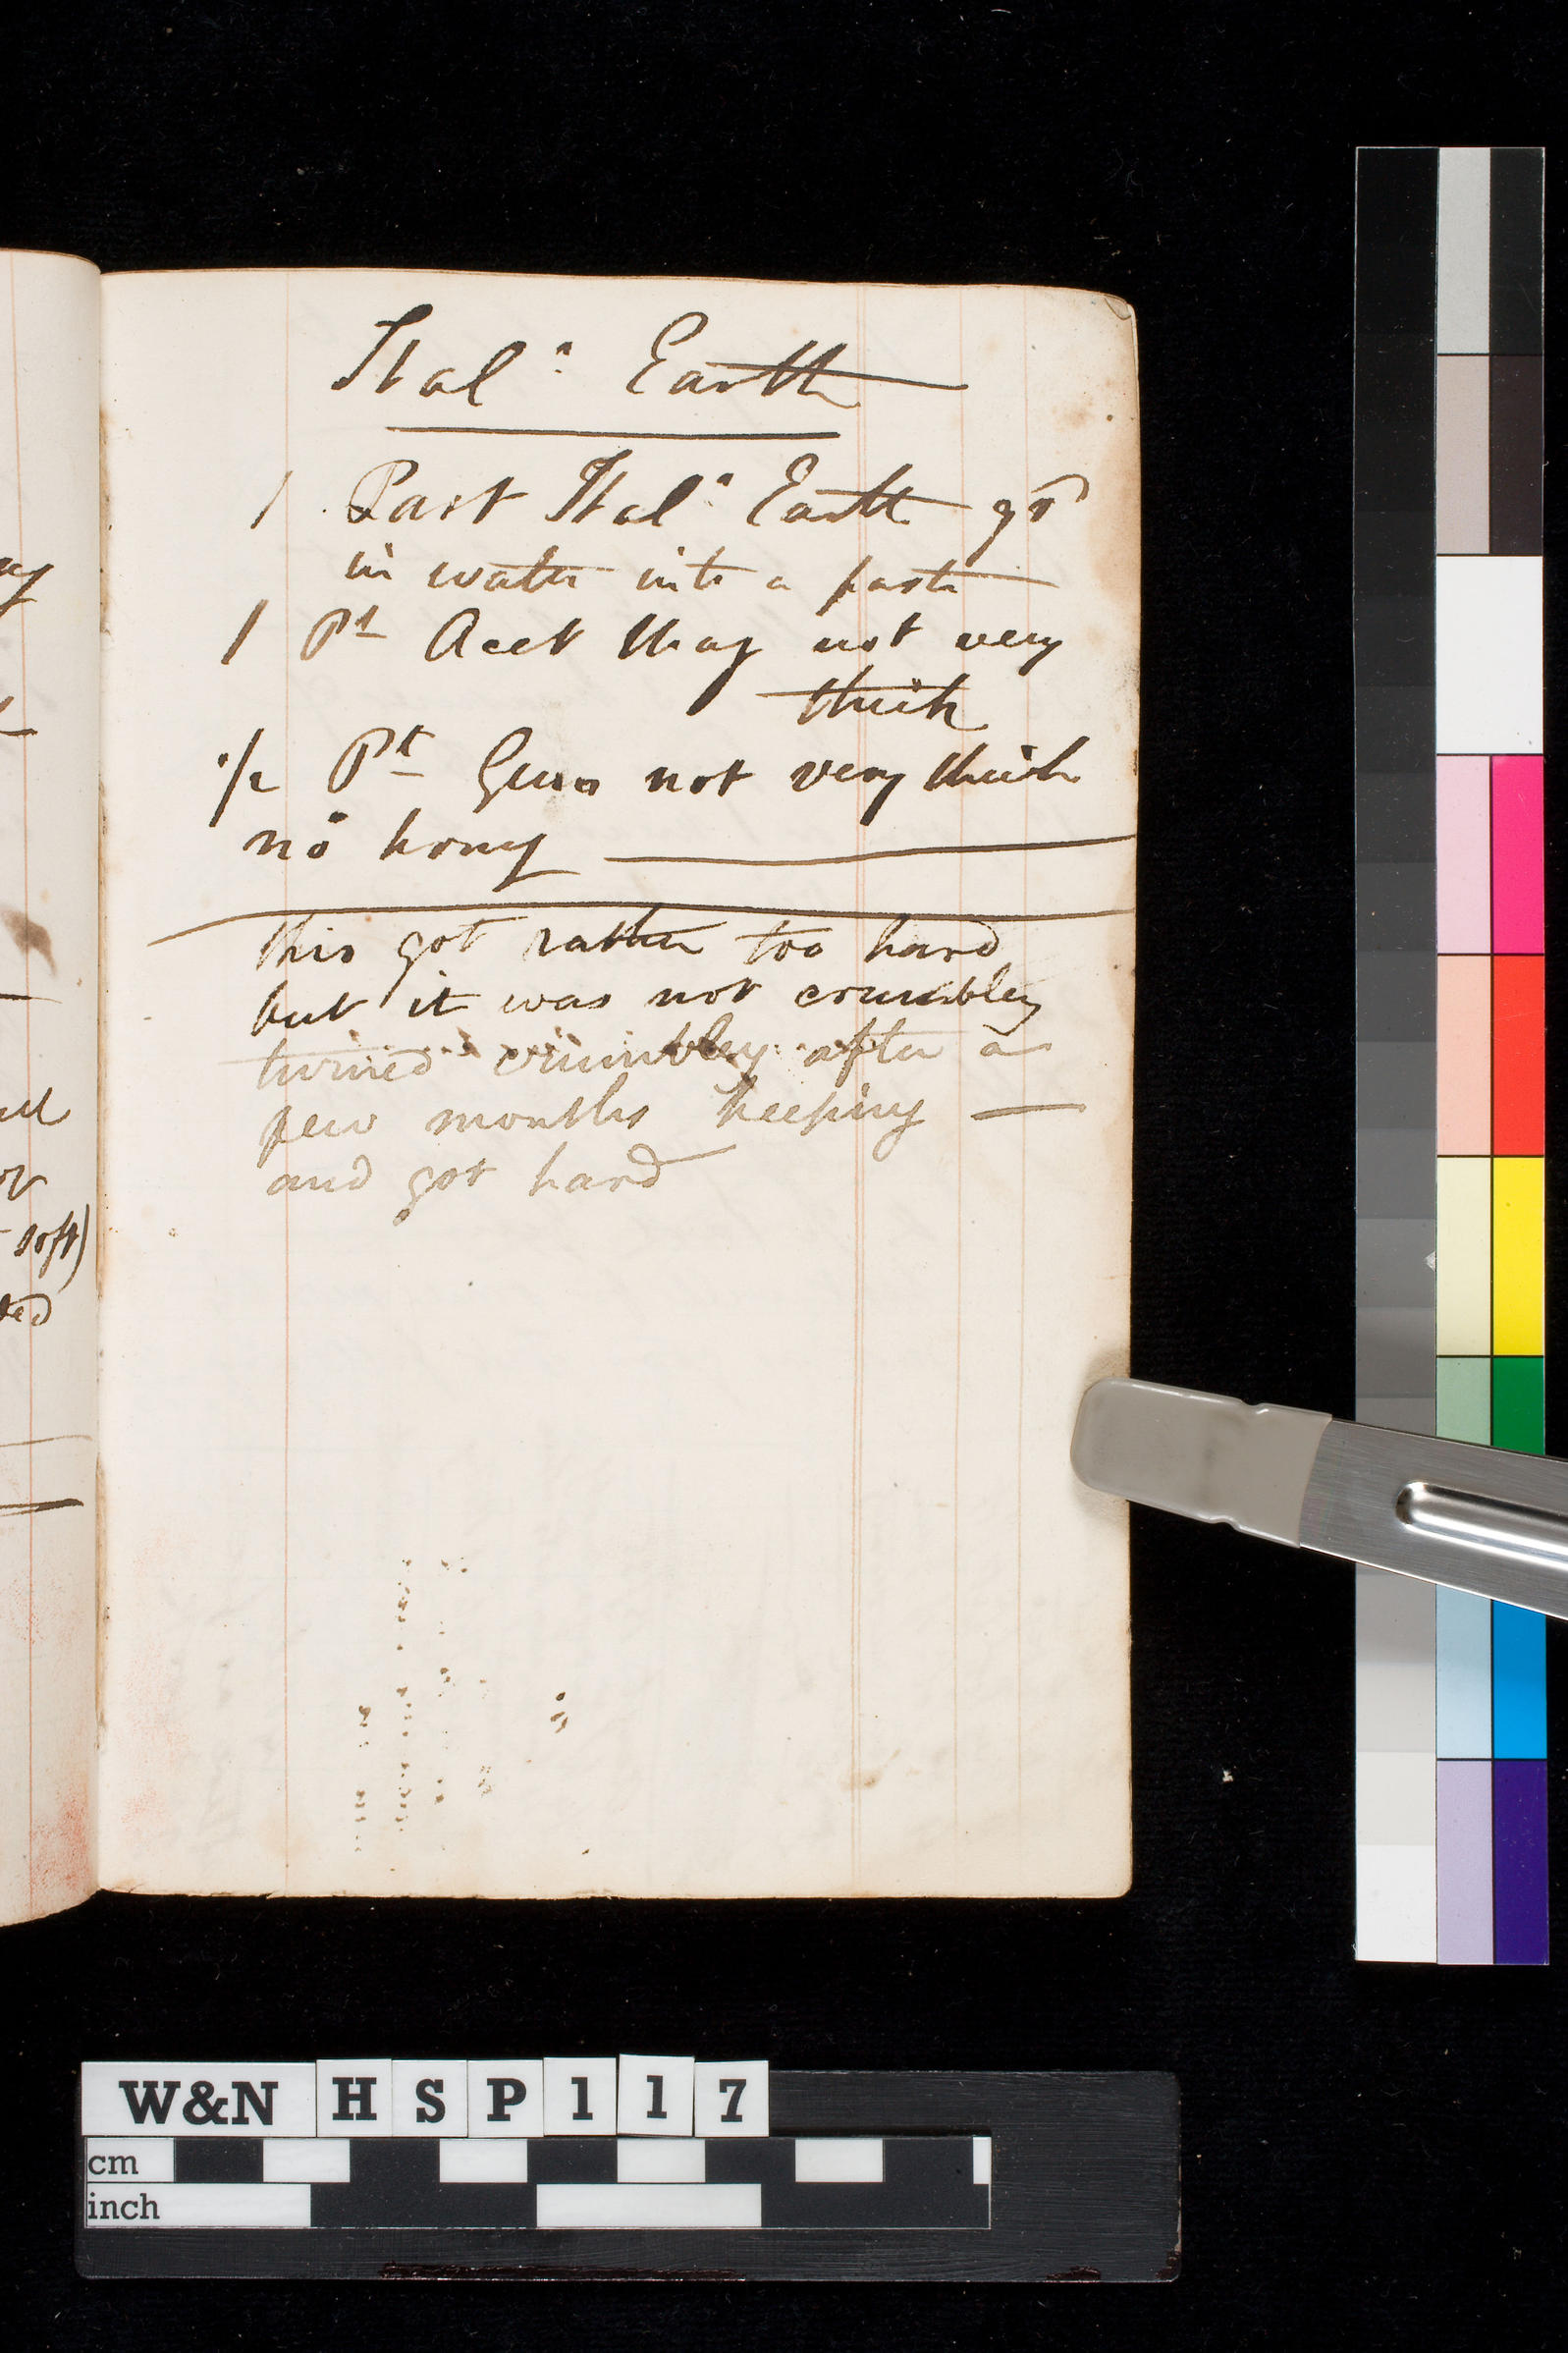 Ital: Earth
1 Part Ital: Earth grd
in water into a paste
1 Pt Acet Mag not very
thick
1/2 Pt Gum not very thick
no hony
this got rather too hard
but it was not crumbley
turned crumbley after a
few months keeping
and got hard
soft)
W&N HSP117
cm
inch